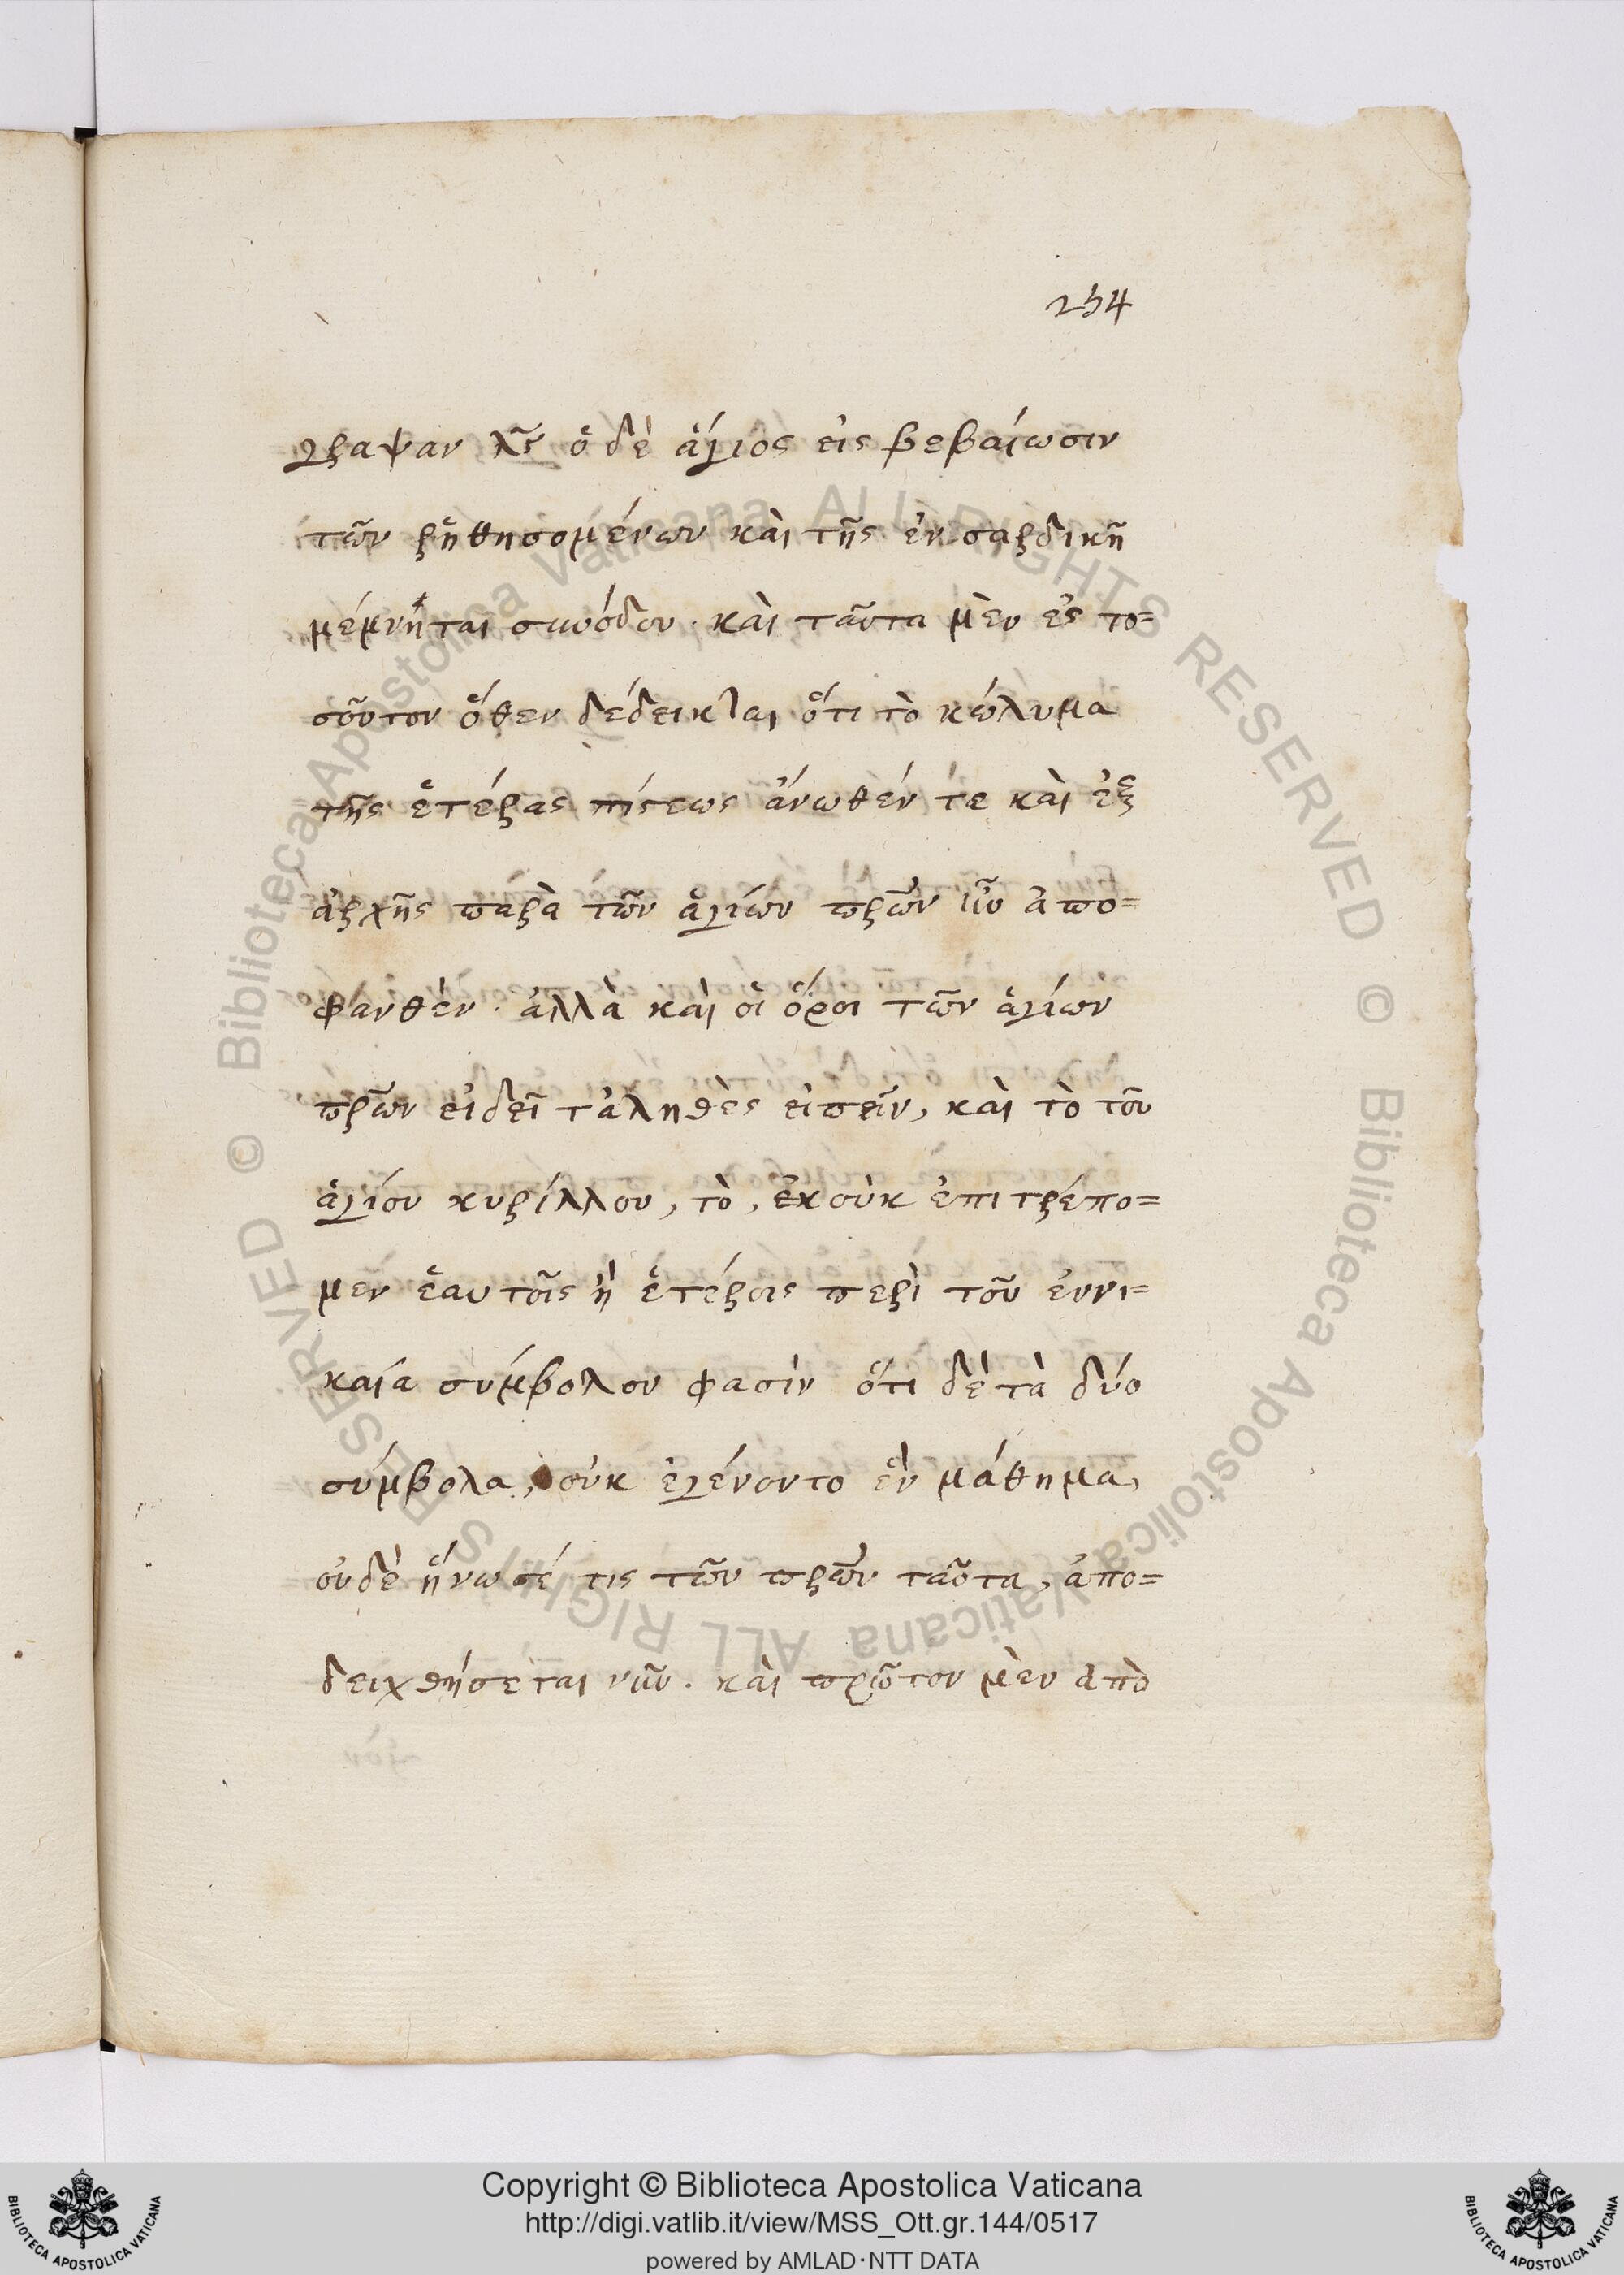 254
γραψαν ὁ δὲ ἅγιος εἰς βεβαίωσιν
τῶν ῥηθησομένων καὶ τῆς ἐν σαρδικῇ
μέμνηται συνόδου. καὶ ταῦτα μὲν ἐς το=
σοῦτον ὅθεν δέδεικται ὅτι τὸ κώλυμα
τῆς ἑτέρας πίστεως ἄνωθέν τε καὶ ἐξ
ἀρχῆς παρὰ τῶν ἁγίων πρῶν ἦν ἀπο=
φανθὲν. ἀλλὰ καὶ οἱ ὅροι τῶν ἁγίων
πρῶν εἰ δεῖ τἀληθὲς εἰπεῖν, καὶ τὸ τοῦ
ἁγίου κυρίλλου, τὸ, ἐκ οὐκ ἐπιτρέπο=
μεν ἑαυτοῖς ἢ ἑτέροις περὶ τοῦ ἐν νι=
καία σύμβολου φασὶν ὅτι δὲ τὰ δύο
σύμβολα, οὐκ ἐγένοντο ἓν μάθημα,
οὐδὲ ἥνωσέ τις τῶν πρῶν ταῦτα, ἀπο=
δειχθήσεται νῦν. καὶ πρῶτον μὲν ἀπὸ
© Biblioteca Apostolica Vaticana ALL RIGHTS RESERVED
© Biblioteca Apostolica Vaticana ALL RIGHTS RESERVED
Copyright © Biblioteca Apostolica Vaticana
http://digi.vatlib.it/view/MSS_Ott.gr.144/0517
powered by AMLAD·NTT DATA
BIBLIOTECA APOSTOLICA VATICANA
BIBLIOTECA APOSTOLICA VATICANA